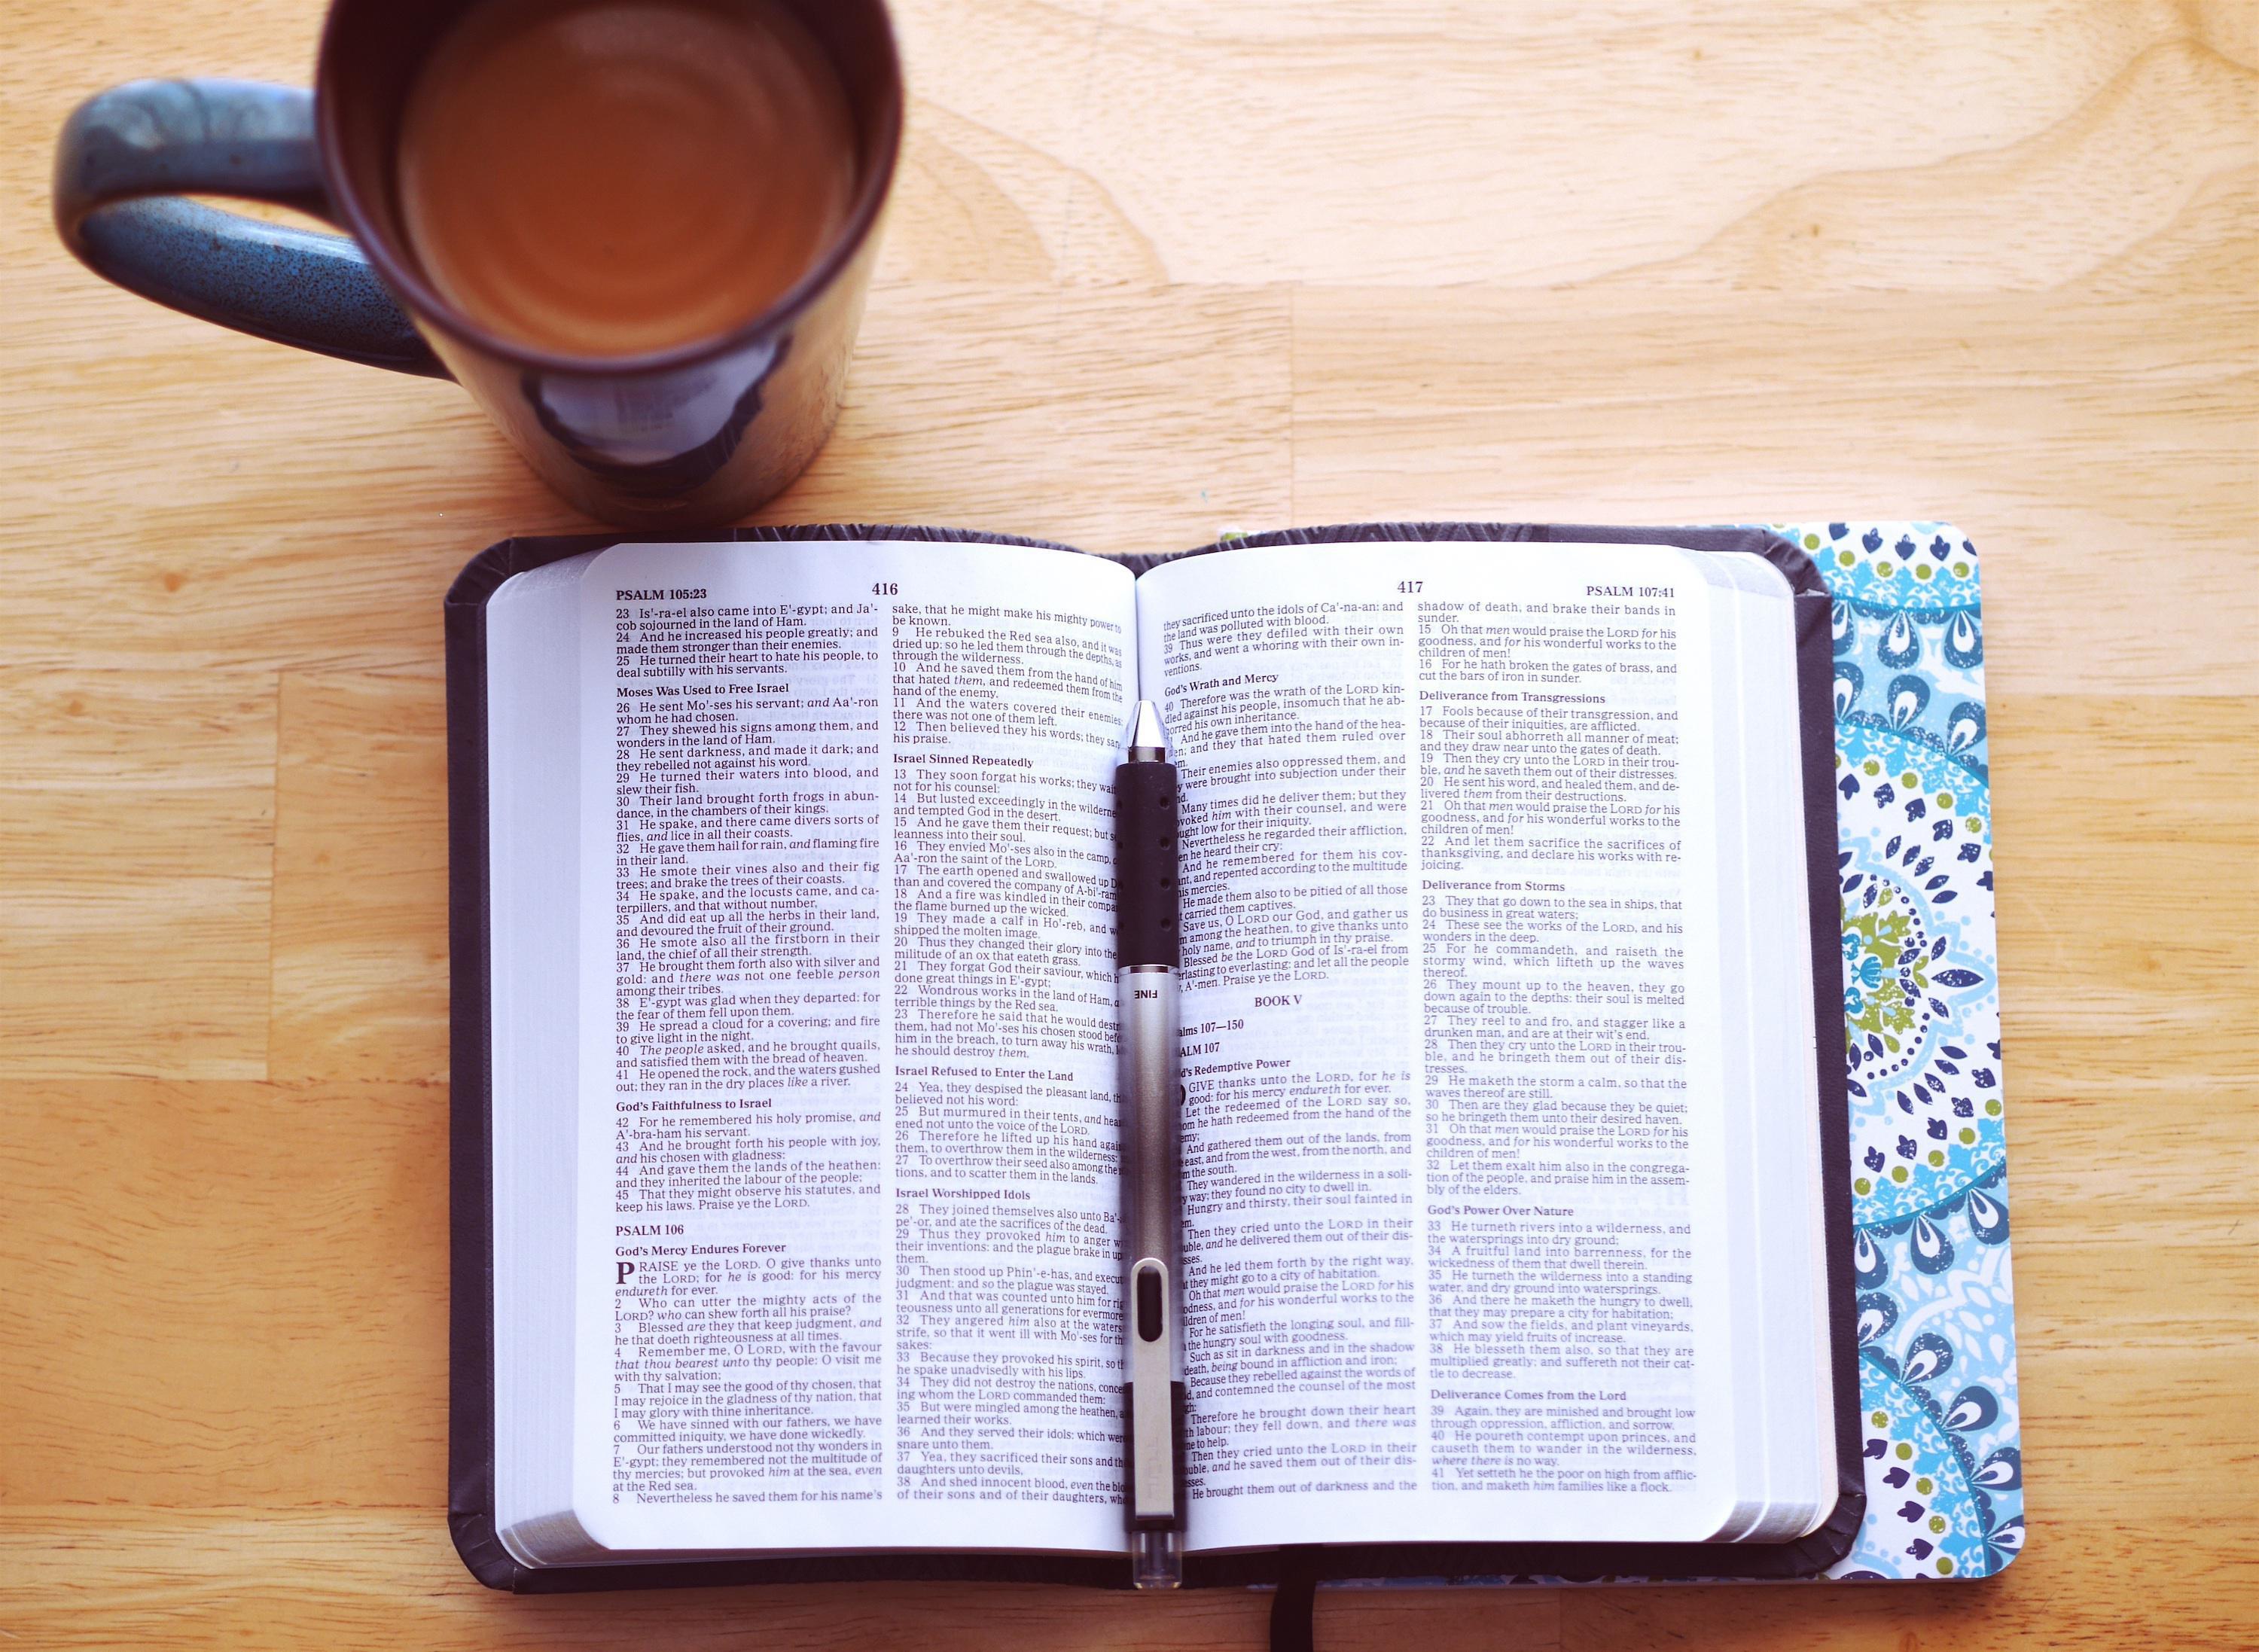 PSALM 105:23
416
23 Is'-ra-el also came into E'-gypt; and Ja'-
cob sojourned in the land of Ham.
24 And he increased his people greatly; and
made them stronger than their enemies.
25 He turned their heart to hate his people, to
deal subtilly with his servants.
Moses Was Used to Free Israel
26 He sent Mo'-ses his servant; and Aa'-ron
whom he had chosen.
27 They shewed his signs among them, and
wonders in the land of Ham.
28 He sent darkness, and made it dark; and
they rebelled not against his word.
29 He turned their waters into blood, and
slew their fish.
30 Their land brought forth frogs in abun-
dance, in the chambers of their kings.
31 He spake, and there came divers sorts of
flies, and lice in all their coasts.
32 He gave them hail for rain, and flaming fire
in their land.
33 He smote their vines also and their fig
trees; and brake the trees of their coasts.
34 He spake, and the locusts came, and ca-
terpillers, and that without number,
35 And did eat up all the herbs in their land,
and devoured the fruit of their ground.
36 He smote also all the firstborn in their
land, the chief of all their strength.
37 He brought them forth also with silver and
gold: and there was not one feeble person
among their tribes.
38 E'-gypt was glad when they departed: for
the fear of them fell upon them.
39 He spread a cloud for a covering; and fire
to give light in the night.
40 The people asked, and he brought quails,
and satisfied them with the bread of heaven.
41 He opened the rock, and the waters gushed
out; they ran in the dry places like a river.
God's Faithfulness to Israel
42 For he remembered his holy promise, and
A'-bra-ham his servant.
43 And he brought forth his people with joy,
and his chosen with gladness:
44 And gave them the lands of the heathen:
and they inherited the labour of the people;
45 That they might observe his statutes, and
keep his laws. Praise ye the LORD.
PSALM 106
God's Mercy Endures Forever
PRAISE ye the LORD. O give thanks unto
the LORD; for he is good: for his mercy
endureth for ever.
2 Who can utter the mighty acts of the
LORD? who can shew forth all his praise?
3 Blessed are they that keep judgment, and
he that doeth righteousness at all times.
4 Remember me, O LORD, with the favour
that thou bearest unto thy people: O visit me
with thy salvation;
5 That I may see the good of thy chosen, that
I may rejoice in the gladness of thy nation, that
I may glory with thine inheritance.
6 We have sinned with our fathers, we have
committed iniquity, we have done wickedly.
7 Our fathers understood not thy wonders in
E'-gypt; they remembered not the multitude of
thy mercies; but provoked him at the sea, even
at the Red sea.
8 Nevertheless he saved them for his name's
sake, that he might make his mighty power to
be known.
9 He rebuked the Red sea also, and it was
dried up: so he led them through the depths, as
through the wilderness.
10 And he saved them from the hand of him
that hated them, and redeemed them from the
hand of the enemy.
11 And the waters covered their enemies:
there was not one of them left.
12 Then believed they his words; they sang
his praise.
Israel Sinned Repeatedly
13 They soon forgat his works; they wai
not for his counsel:
14 But lusted exceedingly in the wilderne
and tempted God in the desert.
15 And he gave them their request; but s
leanness into their soul.
16 They envied Mo'-ses also in the camp,
Aa'-ron the saint of the LORD.
17 The earth opened and swallowed up D
than and covered the company of A-bi'-ram
18 And a fire was kindled in their compa
the flame burned up the wicked.
19 They made a calf in Ho'-reb, and w
shipped the molten image.
20 Thus they changed their glory into the
militude of an ox that eateth grass.
21 They forgat God their saviour, which h
done great things in E'-gypt;
22 Wondrous works in the land of Ham, a
terrible things by the Red sea.
23 Therefore he said that he would destr
them, had not Mo'-ses his chosen stood befo
him in the breach, to turn away his wrath,
he should destroy them.
Israel Refused to Enter the Land
24 Yea, they despised the pleasant land, th
believed not his word:
25 But murmured in their tents, and hear
ened not unto the voice of the LORD.
26 Therefore he lifted up his hand agai
them, to overthrow them in the wilderness:
27 To overthrow their seed also among the
tions, and to scatter them in the lands.
Israel Worshipped Idols
28 They joined themselves also unto Ba'-
pe'-or, and ate the sacrifices of the dead.
29 Thus they provoked him to anger w
their inventions: and the plague brake in up
them.
30 Then stood up Phin'-e-has, and execut
judgment: and so the plague was stayed.
31 And that was counted unto him for rig
teousness unto all generations for evermore
32 They angered him also at the waters
strife, so that it went ill with Mo'-ses for th
sakes:
33 Because they provoked his spirit, so t
he spake unadvisedly with his lips.
34 They did not destroy the nations, conce
ing whom the LORD commanded them:
35 But were mingled among the heathen, a
learned their works.
36 And they served their idols: which wer
snare unto them.
37 Yea, they sacrificed their sons and th
daughters unto devils,
38 And shed innocent blood, even the blo
of their sons and of their daughters, wh
FINE
417
PSALM 107:41
they sacrificed unto the idols of Ca'-na-an: and
the land was polluted with blood.
39 Thus were they defiled with their own
works, and went a whoring with their own in-
ventions.
God's Wrath and Mercy
40 Therefore was the wrath of the LORD kin-
dled against his people, insomuch that he ab-
orred his own inheritance.
And he gave them into the hand of the hea-
en; and they that hated them ruled over
em.
Their enemies also oppressed them, and
y were brought into subjection under their
nd.
Many times did he deliver them; but they
voked him with their counsel, and were
ught low for their iniquity.
Nevertheless he regarded their affliction,
en he heard their cry:
And he remembered for them his cov-
ant, and repented according to the multitude
his mercies.
He made them also to be pitied of all those
t carried them captives.
Save us, O LORD our God, and gather us
m among the heathen, to give thanks unto
holy name, and to triumph in thy praise.
Blessed be the LORD God of Is'-ra-el from
erlasting to everlasting: and let all the people
y, A'-men. Praise ye the LORD.
BOOK V
alms 107—150
ALM 107
d's Redemptive Power
O GIVE thanks unto the LORD, for he is
good: for his mercy endureth for ever.
Let the redeemed of the LORD say so,
hom he hath redeemed from the hand of the
emy;
And gathered them out of the lands, from
e east, and from the west, from the north, and
m the south.
They wandered in the wilderness in a soli-
y way; they found no city to dwell in.
Hungry and thirsty, their soul fainted in
em.
Then they cried unto the LORD in their
uble, and he delivered them out of their dis-
sses.
And he led them forth by the right way,
t they might go to a city of habitation.
Oh that men would praise the LORD for his
odness, and for his wonderful works to the
ldren of men!
For he satisfieth the longing soul, and fill-
the hungry soul with goodness.
Such as sit in darkness and in the shadow
death, being bound in affliction and iron;
Because they rebelled against the words of
d, and contemned the counsel of the most
gh:
Therefore he brought down their heart
th labour; they fell down, and there was
ne to help.
Then they cried unto the LORD in their
uble, and he saved them out of their dis-
sses.
He brought them out of darkness and the
shadow of death, and brake their bands in
sunder.
15 Oh that men would praise the LORD for his
goodness, and for his wonderful works to the
children of men!
16 For he hath broken the gates of brass, and
cut the bars of iron in sunder.
Deliverance from Transgressions
17 Fools because of their transgression, and
because of their iniquities, are afflicted.
18 Their soul abhorreth all manner of meat;
and they draw near unto the gates of death.
19 Then they cry unto the LORD in their trou-
ble, and he saveth them out of their distresses.
20 He sent his word, and healed them, and de-
livered them from their destructions.
21 Oh that men would praise the LORD for his
goodness, and for his wonderful works to the
children of men!
22 And let them sacrifice the sacrifices of
thanksgiving, and declare his works with re-
joicing.
Deliverance from Storms
23 They that go down to the sea in ships, that
do business in great waters;
24 These see the works of the LORD, and his
wonders in the deep.
25 For he commandeth, and raiseth the
stormy wind, which lifteth up the waves
thereof.
26 They mount up to the heaven, they go
down again to the depths: their soul is melted
because of trouble.
27 They reel to and fro, and stagger like a
drunken man, and are at their wit's end.
28 Then they cry unto the LORD in their trou-
ble, and he bringeth them out of their dis-
tresses.
29 He maketh the storm a calm, so that the
waves thereof are still.
30 Then are they glad because they be quiet;
so he bringeth them unto their desired haven.
31 Oh that men would praise the LORD for his
goodness, and for his wonderful works to the
children of men!
32 Let them exalt him also in the congrega-
tion of the people, and praise him in the assem-
bly of the elders.
God's Power Over Nature
33 He turneth rivers into a wilderness, and
the watersprings into dry ground;
34 A fruitful land into barrenness, for the
wickedness of them that dwell therein.
35 He turneth the wilderness into a standing
water, and dry ground into watersprings.
36 And there he maketh the hungry to dwell,
that they may prepare a city for habitation;
37 And sow the fields, and plant vineyards,
which may yield fruits of increase.
38 He blesseth them also, so that they are
multiplied greatly; and suffereth not their cat-
tle to decrease.
Deliverance Comes from the Lord
39 Again, they are minished and brought low
through oppression, affliction, and sorrow.
40 He poureth contempt upon princes, and
causeth them to wander in the wilderness,
where there is no way.
41 Yet setteth he the poor on high from afflic-
tion, and maketh him families like a flock.